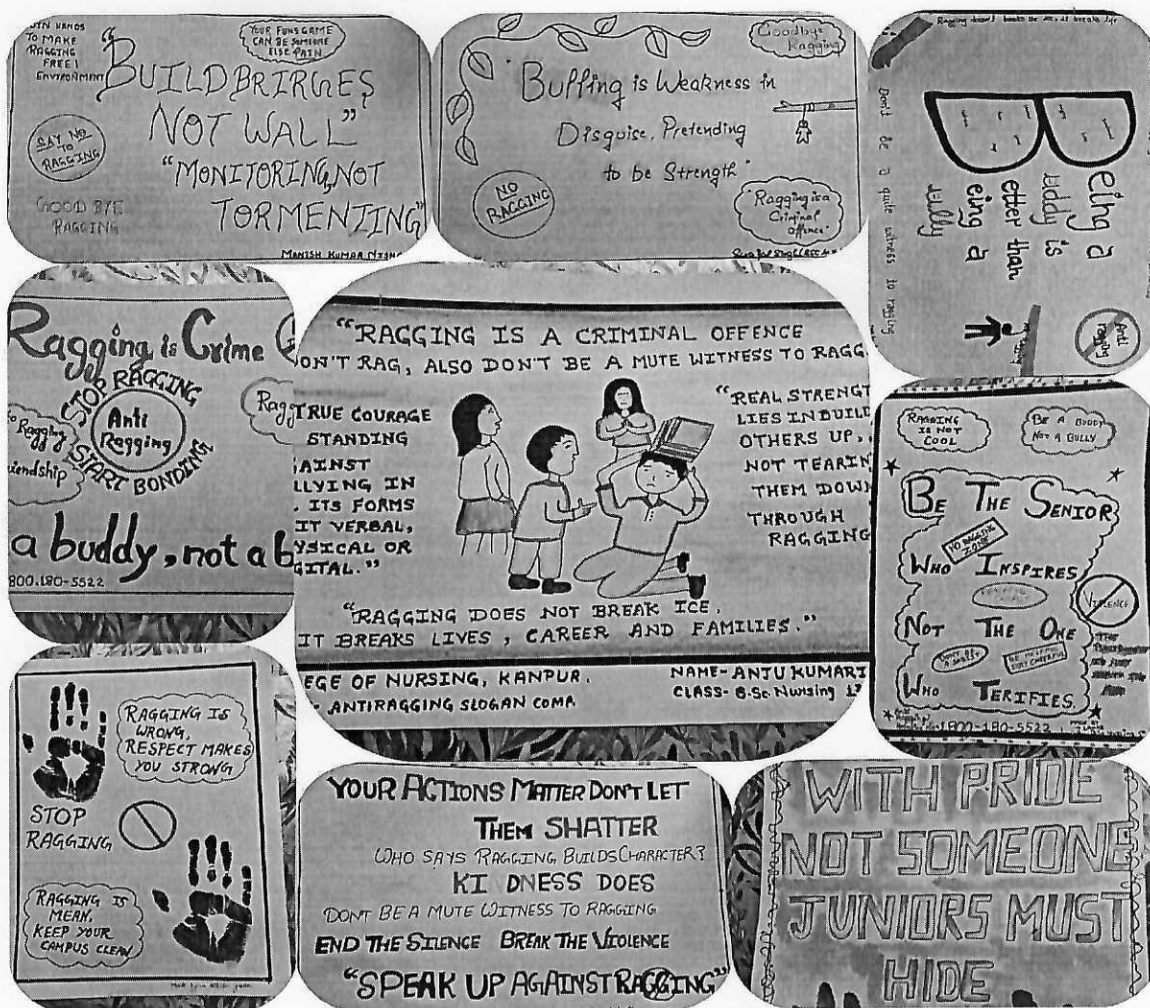 JOIN HANDS
TO MAKE
RAGGING
FREE
ENVIRONMENT
YOUR FUNS GAME
CAN BE SOMEONE
ELSE PAIN
"BUILD BRIRGES
NOT WALL"
"MONITORING, NOT
TORMENTING"
SAY NO
TO
RAGGING
GOOD BYE
RAGGING
MANISH KUMAR
Goodbye
Ragging
"Bulling is Weakness in
Disguise, Pretending
to be Strength"
NO
RAGGING
"Ragging is a
Criminal
offence"
Ragging doesn't breaks the ice, it breaks life
Being a
Buddy is
Better than
Being a
Bully
Don't be a quite witness to ragging
Anti
ragging
Ragging is Crime
STOP RAGGING
Anti
Ragging
START BONDING
to Ragging
riendship
Ragg
a buddy, not a b
800.180-5522
"RAGGING IS A CRIMINAL OFFENCE
ON'T RAG, ALSO DON'T BE A MUTE WITNESS TO RAGG
TRUE COURAGE
STANDING
AINST
LLYING IN
ITS FORMS
IT VERBAL,
YSICAL OR
GITAL."
"REAL STRENGT
LIES IN BUILD
OTHERS UP,
NOT TEARIN
THEM DOWN
THROUGH
RAGGING
"RAGGING DOES NOT BREAK ICE,
IT BREAKS LIVES, CAREER AND FAMILIES."
EGE OF NURSING, KANPUR.
- ANTIRAGGING SLOGAN COMP
NAME- ANJU KUMARI
CLASS- B.Sc Nursing
RAGGING
IS NOT
COOL
BE A BUDDY
NOT A BULLY
BE THE SENIOR
NO RAGGING
ZONE
WHO INSPIRES
VIOLENCE
NOT THE ONE
WHO TERIFIES.
1800-180-5522
RAGGING IS
WRONG,
RESPECT MAKES
YOU STRONG
STOP
RAGGING
RAGGING IS
MEAN,
KEEP YOUR
CAMPUS CLEAN
YOUR ACTIONS MATTER DON'T LET
THEM SHATTER
WHO SAYS RAGGING BUILDS CHARACTER?
KINDNESS DOES
DONT BE A MUTE WITNESS TO RAGGING
END THE SILENCE BREAK THE VIOLENCE
"SPEAK UP AGAINST RAGGING"
WITH PRIDE
NOT SOMEONE
JUNIORS MUST
HIDE